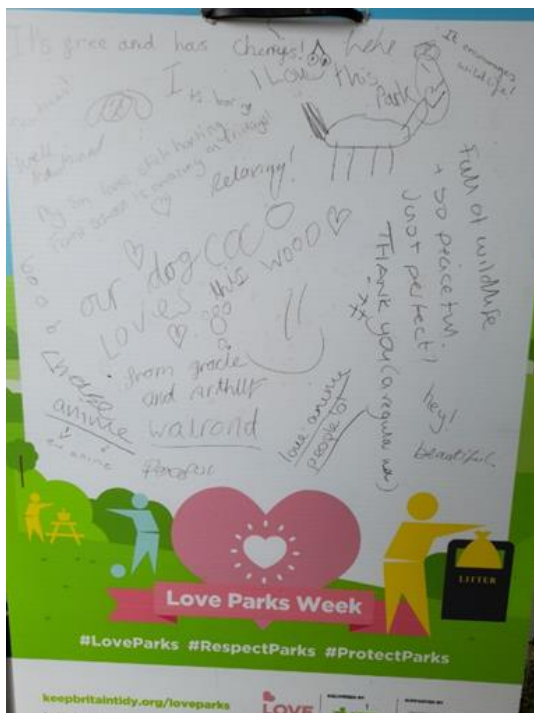 It's gree and has cherrys!
hehe
It encourages
wildlife!
I Love this
Park
Is boring
Well
My son loves stick hunting
Forest school is amazing on fridays!
Relaxing!
Full of wildlife
+ so peaceful
Just perfect!
THANK you (a regular user)
xx
our dog COCO
LOVES this WOOD
from gracie
and Arthur
walrond
anime
love anime
people
hey!
beautiful
Love Parks Week
LITTER
#LoveParks #RespectParks #ProtectParks
keepbritaintidy.org/loveparks
LOVE